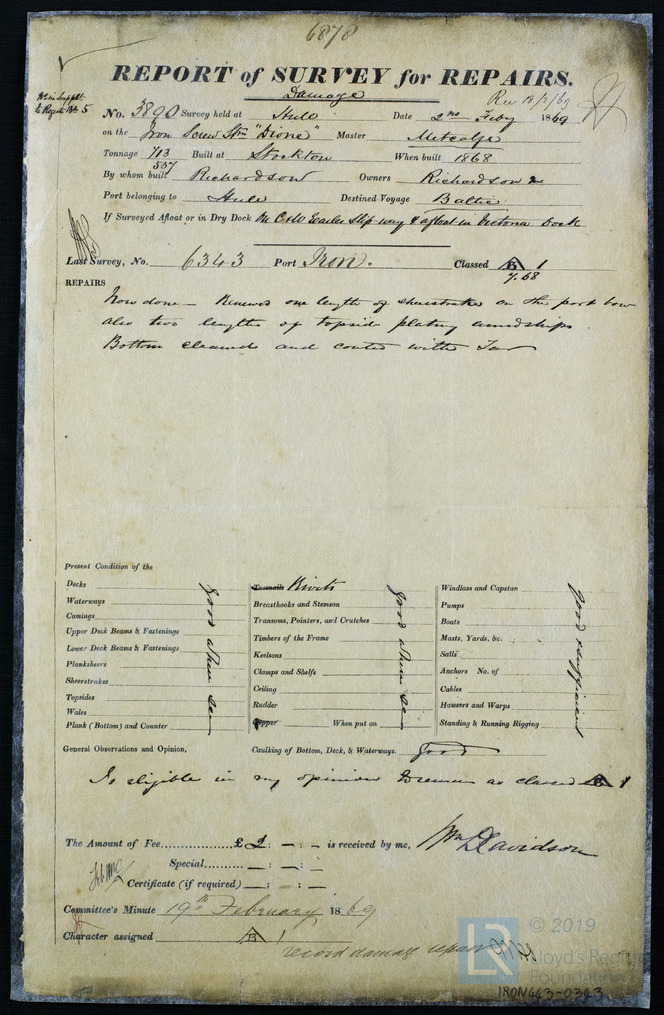 6878
REPORT of SURVEY for REPAIRS.
Damage
Rec 18/2/69
No. 3890 Survey held at Hull Date 2nd Feby 1869
on the Iron Screw Str "Dione" Master Metcalfe
Tonnage 713 Built at Stockton When built 1868
557
By whom built Richardson Owners Richardson &
Port belonging to Hull Destined Voyage Baltic
If Surveyed Afloat or in Dry Dock On C & W Earles Slip way & afloat in Victoria Dock
Last Survey, No. 6343 Port Iron. Classed A 1
7.68
REPAIRS
Now done — Renewed one length of sheerstrake on the port bow
also two lengths of topside plating amidships
Bottom cleaned and coated with Tar
Present Condition of the
Decks
Waterways
Comings
Upper Deck Beams & Fastenings
Lower Deck Beams & Fastenings
Planksheers
Sheerstrakes
Topsides
Wales
Plank (Bottom) and Counter
good where seen
Treenails Rivets
Breasthooks and Stemson
Transoms, Pointers, and Crutches
Timbers of the Frame
Keelsons
Clamps and Shelfs
Ceiling
Rudder
Copper When put on
good where seen
Windlass and Capstan
Pumps
Boats
Masts, Yards, &c.
Sails
Anchors No. of
Cables
Hawsers and Warps
Standing & Running Rigging
good & sufficient
General Observations and Opinion, Caulking of Bottom, Deck, & Waterways. good
Is eligible in my opinion to remain as classed A 1
The Amount of Fee £ 2 : — : — is received by me, Wm Davidson
Special — : — : —
Certificate (if required) — : — : —
Committee's Minute 19th February 1869
Character assigned A 1
record damage repair
© 2019
LR Lloyd's Register
Foundation
IRON443-0343